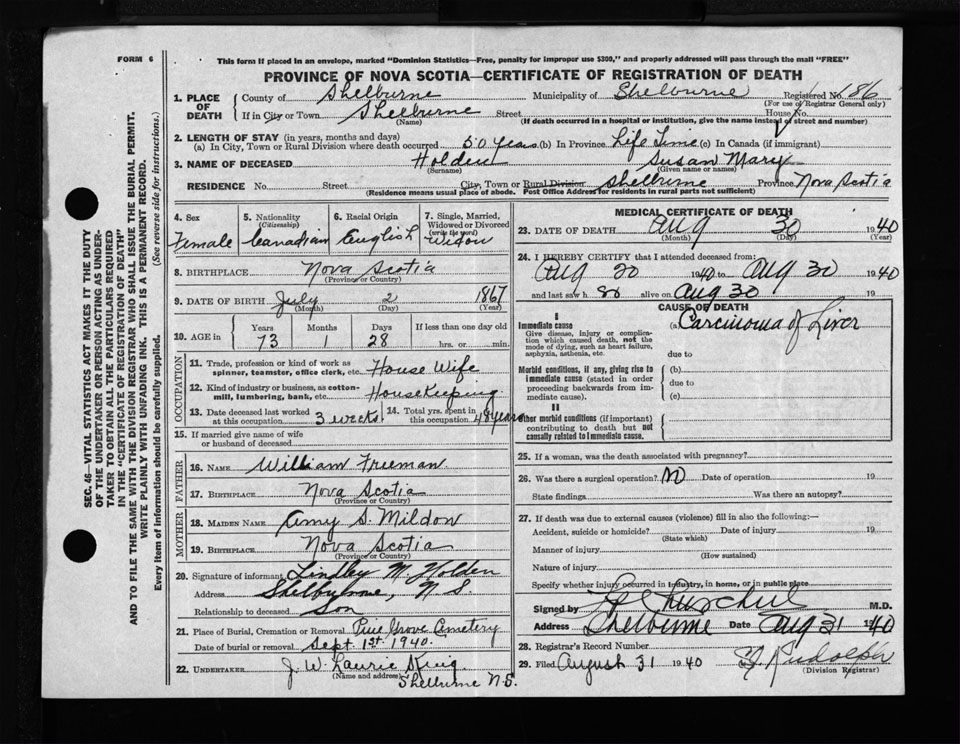 FORM 6
This form if placed in an envelope, marked "Dominion Statistics—Free, penalty for improper use $300," and properly addressed will pass through the mail "FREE"
PROVINCE OF NOVA SCOTIA—CERTIFICATE OF REGISTRATION OF DEATH
SEC. 46—VITAL STATISTICS ACT MAKES IT THE DUTY
OF THE UNDERTAKER OR PERSON ACTING AS UNDER-
TAKER TO OBTAIN ALL THE PARTICULARS REQUIRED
IN THE "CERTIFICATE OF REGISTRATION OF DEATH"
AND TO FILE THE SAME WITH THE DIVISION REGISTRAR WHO SHALL ISSUE THE BURIAL PERMIT.
WRITE PLAINLY WITH UNFADING INK. THIS IS A PERMANENT RECORD.
Every item of information should be carefully supplied. (See reverse side for instructions.)
1. PLACE OF DEATH County of Shelburne Municipality of Shelburne Registered No. 86
(For use of Registrar General only)
If in City or Town Shelburne Street House No.
(Name) (If death occurred in a hospital or institution, give the name instead of street and number)
2. LENGTH OF STAY (in years, months and days)
(a) In City, Town or Rural Division where death occurred 50 years (b) In Province Life Time (c) In Canada (if immigrant)
3. NAME OF DECEASED Holden Susan Mary
(Surname) (Given name or names)
RESIDENCE No. Street City, Town or Rural Division Shelburne Province Nova Scotia
(Residence means usual place of abode. Post Office Address for residents in rural parts not sufficient)
4. Sex 5. Nationality (Citizenship) 6. Racial Origin 7. Single, Married, Widowed or Divorced (write the word)
Female Canadian English Widow
8. BIRTHPLACE Nova Scotia
(Province or Country)
9. DATE OF BIRTH July 2 1867
(Month) (Day) (Year)
10. AGE in Years Months Days If less than one day old
73 1 28 hrs. or min.
OCCUPATION
11. Trade, profession or kind of work as
spinner, teamster, office clerk, etc. House Wife
12. Kind of industry or business, as cotton-
mill, lumbering, bank, etc. Housekeeping
13. Date deceased last worked
at this occupation 3 weeks 14. Total yrs. spent in
this occupation 48 years
15. If married give name of wife
or husband of deceased
FATHER
16. NAME William Freeman
17. BIRTHPLACE Nova Scotia
(Province or Country)
MOTHER
18. MAIDEN NAME Amy S. Mildon
19. BIRTHPLACE Nova Scotia
(Province or Country)
20. Signature of informant Lindley M. Holden
Address Shelburne, N. S.
Relationship to deceased Son
21. Place of Burial, Cremation or Removal Pine Grove Cemetery
Date of burial or removal Sept. 1st 1940.
22. UNDERTAKER J. W. Laurie King
(Name and address)
Shelburne N.S.
MEDICAL CERTIFICATE OF DEATH
23. DATE OF DEATH Aug 30 1940
(Month) (Day) (Year)
24. I HEREBY CERTIFY that I attended deceased from:
Aug 20 1940 to Aug 30 1940
and last saw h alive on Aug 30 19
CAUSE OF DEATH
I
Immediate cause (a) Carcinoma of Liver
Give disease, injury or complica-
tion which caused death, not the
mode of dying, such as heart failure,
asphyxia, asthenia, etc. due to
Morbid conditions, if any, giving rise to (b)
immediate cause (stated in order due to
proceeding backwards from im-
mediate cause). (c)
II
Other morbid conditions (if important)
contributing to death but not
causally related to immediate cause.
25. If a woman, was the death associated with pregnancy?
26. Was there a surgical operation? No Date of operation 19
State findings Was there an autopsy?
27. If death was due to external causes (violence) fill in also the following:—
Accident, suicide or homicide? Date of injury 19
(State which)
Manner of injury
(How sustained)
Nature of injury
Specify whether injury occurred in industry, in home, or in public place
Signed by Churchill M.D.
Address Shelburne Date Aug 31 1940
28. Registrar's Record Number
29. Filed August 31 1940 Rudolph
(Division Registrar)